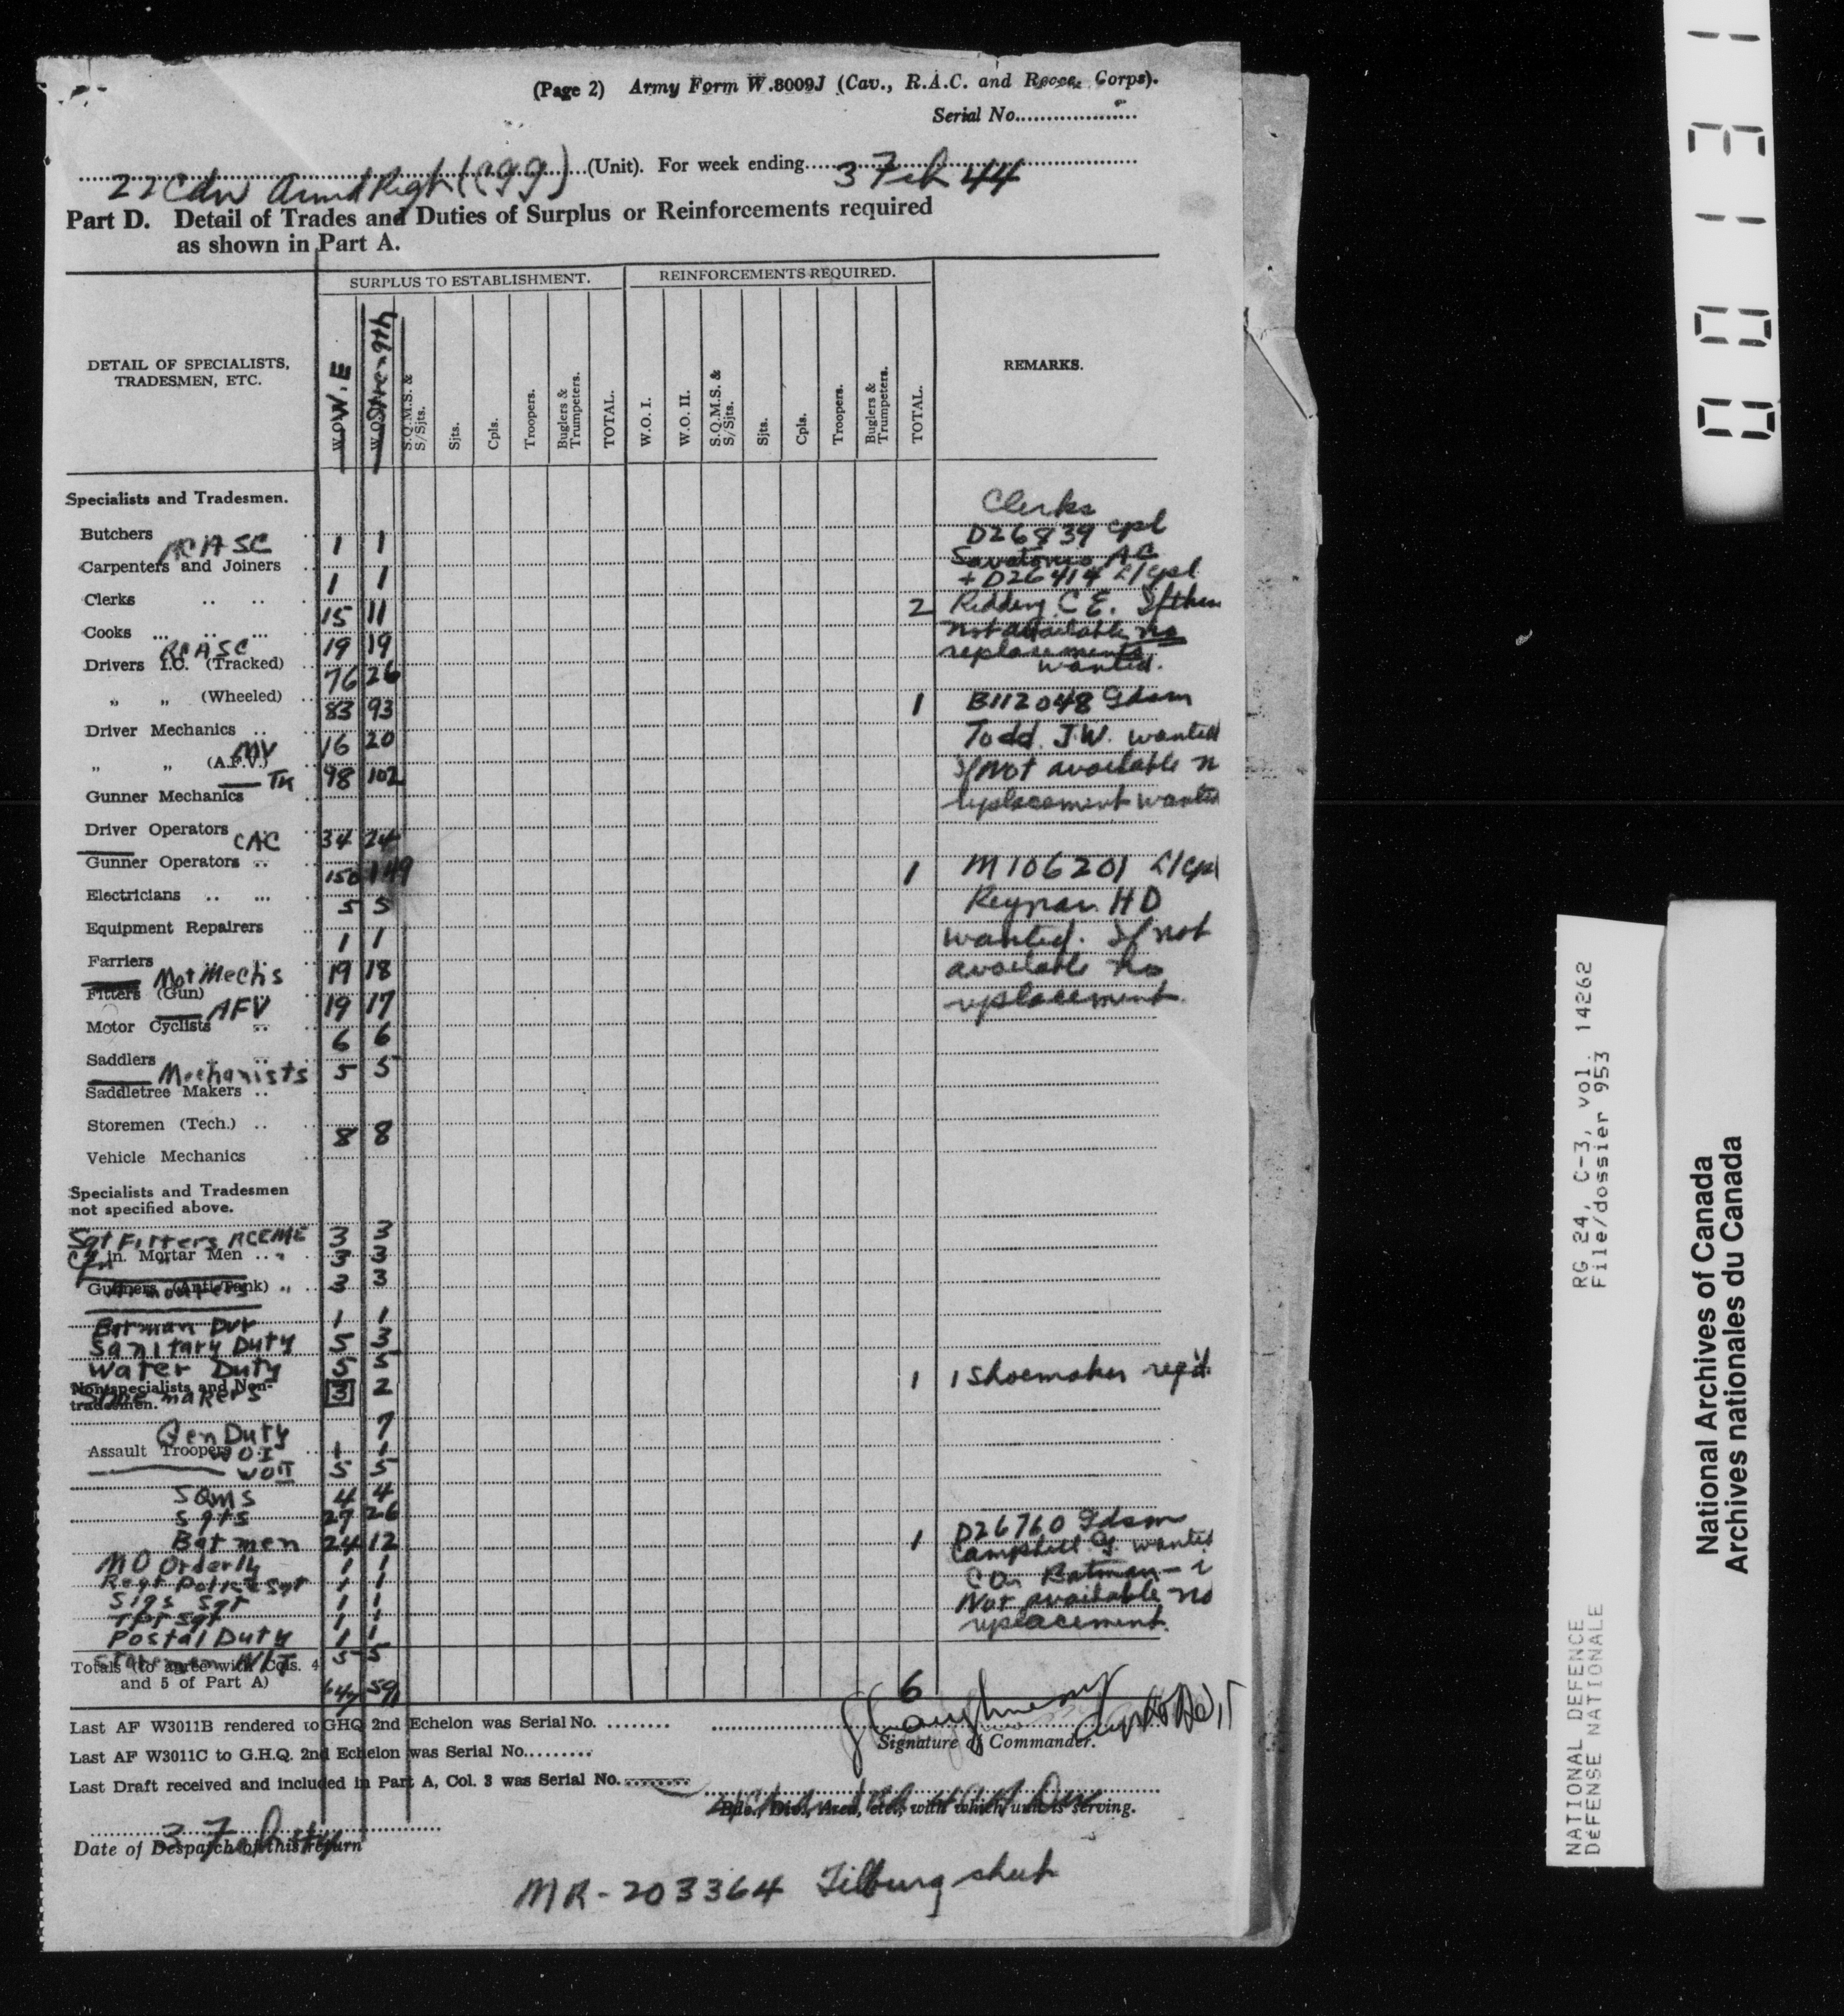 (Page 2) Army Form W.8009J (Cav., R.A.C. and Recce. Corps).
Serial No....................
22 Cdn Armd Regt (CGG) (Unit). For week ending 3 Feb 44
Part D. Detail of Trades and Duties of Surplus or Reinforcements required
as shown in Part A.
DETAIL OF SPECIALISTS, TRADESMEN, ETC.
SURPLUS TO ESTABLISHMENT.
REINFORCEMENTS REQUIRED.
REMARKS.
W.E
Strength
S.Q.M.S. & S/Sjts.
Sjts.
Cpls.
Troopers.
Buglers & Trumpeters.
TOTAL.
W.O. I.
W.O. II.
S.Q.M.S. & S/Sjts.
Sjts.
Cpls.
Troopers.
Buglers & Trumpeters.
TOTAL.
Specialists and Tradesmen.
Clerks
Butchers RCASC 1 1 D26839 Cpl
AC
Carpenters and Joiners 1 1 + D26414 L/Cpl
Clerks 15 11 2 Redding C E. If them
Cooks RCASC 19 19 not available no
replacements
Drivers I.C. (Tracked) 76 26 wanted.
„ „ (Wheeled) 83 93 1 B112048 Gdsm
Driver Mechanics MV 16 20 Todd J.W. wanted
„ „ (A.F.V.) Tk 98 102 If not available n
Gunner Mechanics replacement wanted
Driver Operators CAC 34 24
Gunner Operators 150 149 1 M106201 L/Cpl
Electricians 5 5 H D
Equipment Repairers 1 1 wanted. If not
Farriers Mot Mechs 19 18 available no
Fitters (Gun) AFV 19 17 replacement.
Motor Cyclists 6 6
Saddlers Mechanists 5 5
Saddletree Makers
Storemen (Tech.) 8 8
Vehicle Mechanics
Specialists and Tradesmen
not specified above.
Sgt Fitters RCEME 3 3
Cfn in. Mortar Men „ 3 3
Gunners (Anti-Tank) „ 3 3
Batman Dvr 1 1
Sanitary Duty 5 3
Water Duty 5 5
Non-specialists and Non-tradesmen.
Shoemakers 3 2 1 1 Shoemaker reqd.
Gen Duty 7
Assault Troopers WOI 1 1
WOII 5 5
SQMS 4 4
Sgts 27 26
Batmen 24 12 1 D26760 Gdsm
MO Orderly 1 1 Campbell G wanted
Regt Police Sgt 1 1 COs Batman -
Sigs Sgt 1 1 Not available no
TPT Sgt 1 1 replacement.
Postal Duty 1 1
Storemen N/T 5 5
Totals (to agree with Cols. 4
and 5 of Part A) 6
Last AF W3011B rendered to GHQ 2nd Echelon was Serial No. ........
Last AF W3011C to G.H.Q. 2nd Echelon was Serial No.........
Signature of Commander.
Last Draft received and included in Part A, Col. 3 was Serial No. ........
Bde., Div., Area, etc., with which unit is serving.
3 Feb 44
Date of Despatch of this return
MR - 203364 Tilburg sheet
001131
RG 24, C-3, vol. 14262
File/dossier 953
NATIONAL DEFENCE
DÉFENSE NATIONALE
National Archives of Canada
Archives nationales du Canada